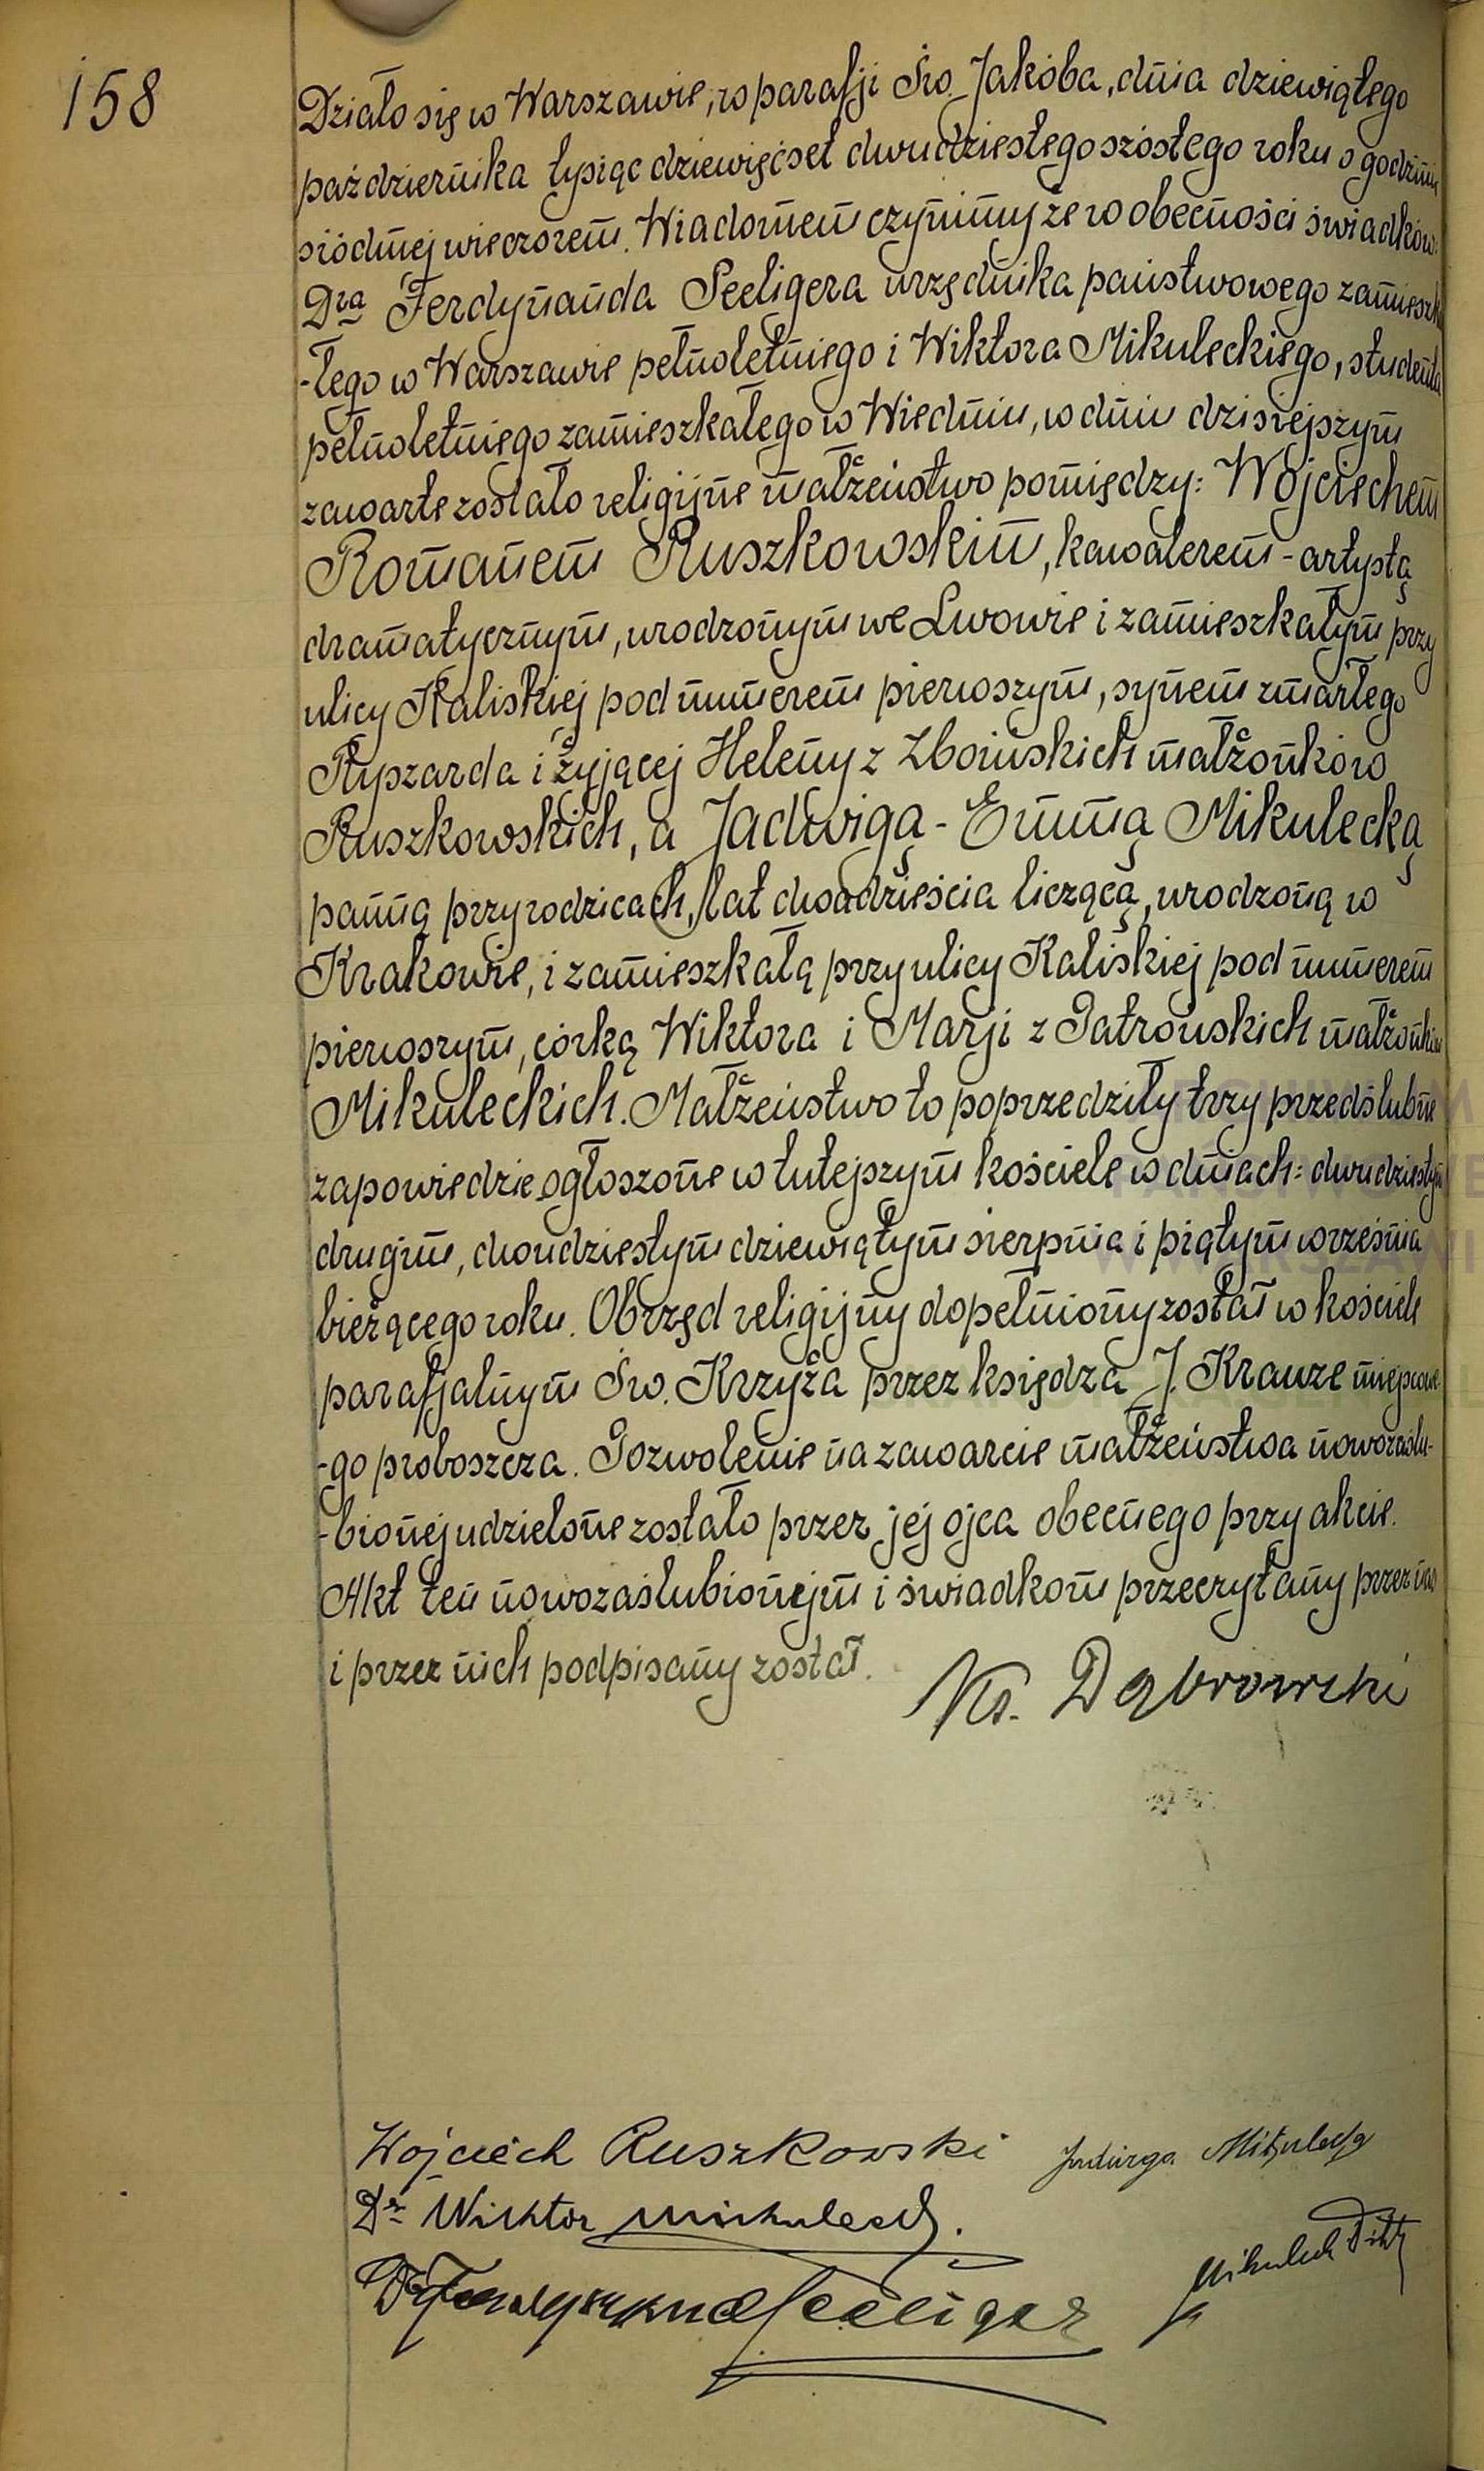 158
Działo się w Warszawie, w parafji Św. Jakóba, dnia dziewiątego
października tysiąc dziewięćset dwudziestego szóstego roku o godzinie
siódmej wieczorem. Wiadomem czynimy że w obecności świadków:
Dra Ferdynanda Seeligera urzędnika państwowego zamieszka
-łego w Warszawie pełnoletniego i Wiktora Mikuleckiego, studenta
pełnoletniego zamieszkałego w Wiedniu, w dniu dzisiejszym
zawarte zostało religijne małżeństwo pomiędzy: Wojciechem
Romanem Ruszkowskim, kawalerem - artystą
dramatycznym, urodzonym we Lwowie i zamieszkałym przy
ulicy Kaliskiej pod numerem pierwszym, synem zmarłego
Ryszarda i żyjącej Heleny z Zboińskich małżonków
Ruszkowskich, a Jadwigą - Emmą Mikulecką
panną przy rodzicach, lat dwadzieścia liczącą, urodzoną w
Krakowie, i zamieszkałą przy ulicy Kaliskiej pod numerem
pierwszym, córką Wiktora i Marji z Patrońskich małżonków
Mikuleckich. Małżeństwo to poprzedziły trzy przedślubne
zapowiedzie ogłoszone w tutejszym kościele w dniach: dwudziestym
drugim, dwudziestym dziewiątym sierpnia i piątym września
bieżącego roku. Obrzęd religijny dopełniony został w kościele
parafjalnym Św. Krzyża przez księdza J. Krauze miejscowe
-go proboszcza. Pozwolenie na zawarcie małżeństwa nowozaślu-
-bionej udzielone zostało przez jej ojca obecnego przy akcie.
Akt ten nowozaślubionejm i świadkom przeczytany przez nas
i przez nich podpisany został.
Ks. Dąbrowski
Wojciech Ruszkowski Jadwiga Mikulecka
Dr Wiktor Mikulecki.
Dr Ferdynand Seeliger
Mikulecki